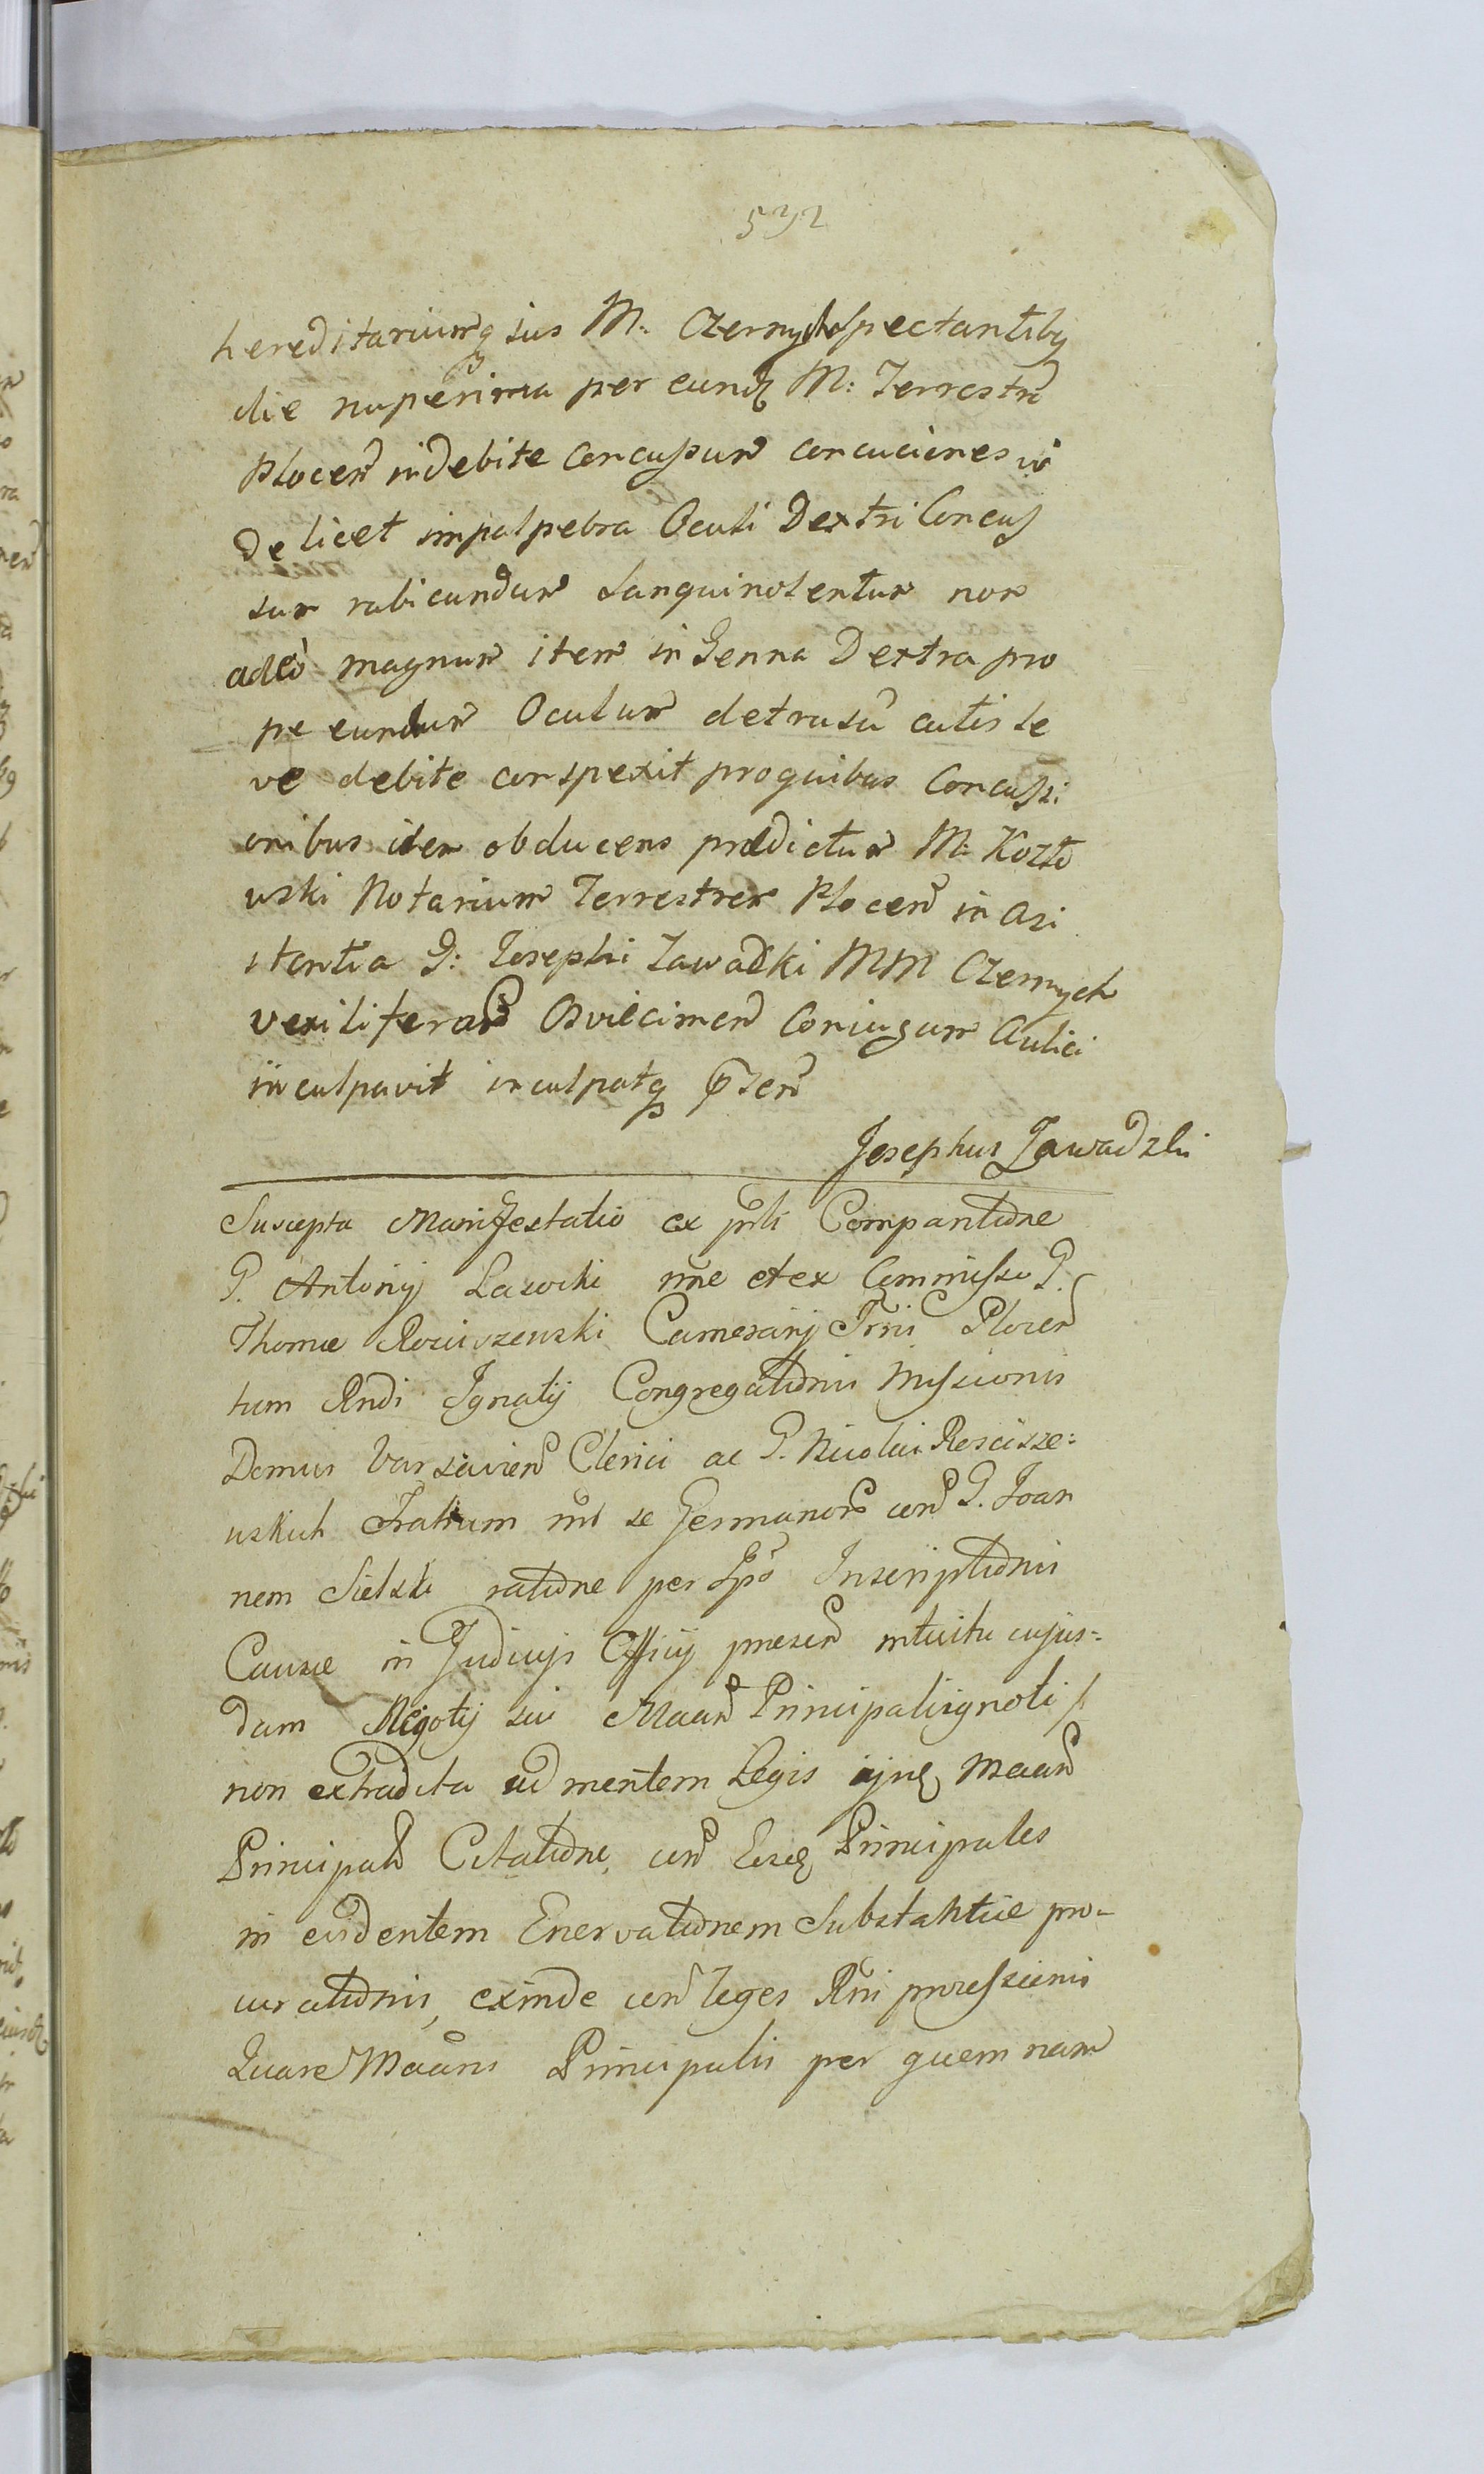 532
hereditariumq ius M. Czernych spectantibq
die nuperima per eundq M: Terrestrē
Plocen indebite concussum concuciones vi
delicet in palpebra Oculi Dextri Concus
sum rubicundum Sanguinolentum non
adeò magnum item in Genna Dextra pro
pe eundum Oculum detrusū cutis le
ve debite conspexit pro quibus Concussi
onibus idem obducens prædictum M. Kozło
wski Notarium Terrestrem Plocen in asi
stentia G: Josephi Zawadzki MM Czernych
vexiliferorum Osviecimen Coniugum Aulici
inculpavit inculpatq psen
Josephus Zawadzki
Suscepta Manifestatio ex prli Comparitione
G. Antonij Lasocki nne et ex Commisso G.
Thomæ Rosciszewski Camerarij Trris Plocen
tum Rndi Ignatij Congregationis Missionis
Domus Varsavien Clerici ac G. Nicolai Rościsze:
wskich Fratrum int se Germanor con G. Joan
nem Sielski ratione per Ipō Inscriptionis
Causæ in Judicijs Officij presen intuitu cujus:
dam Negotij sui Maan Principali ignoti
non extradita ad mentem Legis ejnq Maan
Principali Citatione, con Eosq Principales
in evidentem Enervationem Substantiæ pro-
curationis, exinde con leges Rni processionis
Quare Maans Principalis per quem nam